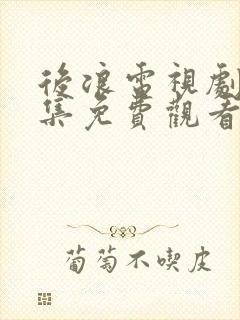 後浪雷視劇
集免費觀看
葡萄不喫皮